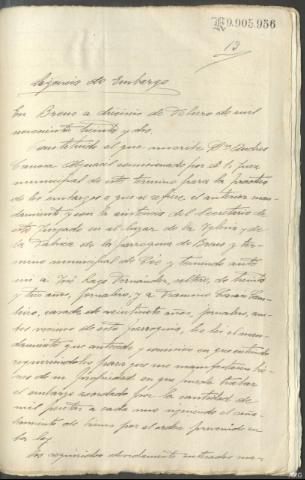 K9.905.956
13
Diligencia de Embargo
En Breus a dieciseis de Febrero de mil
novecientos treinta y dos.
Constituido el que suscribe Dn Andres
Alguacil comisionado por el Sr. Juez
municipal de este termino para la práctica
de los embargos a que se refiere el anterior man-
damiento y con la asistencia del Secretario de
este Juzgado en el lugar de la Iglesia y de
la de la parroquia de Breus y ter-
mino municipal de y teniendo ante
mi a José Lago Fernandez, soltero, de treinta
y tres años, jornalero, y a Francisco
casado de veintisiete años, jornalero, am-
bos vecinos de esta parroquia, les leí el man-
damiento que antecede y comision en que entiendo
requiriendoles para que me manifiesten bie-
nes de su propiedad en que pueda trabar
el embargo acordado por la cantidad de
mil pesetas a cada uno siguiendo el
de bienes por el orden prevenido en
la ley
Los requeridos debidamente enterados ma-